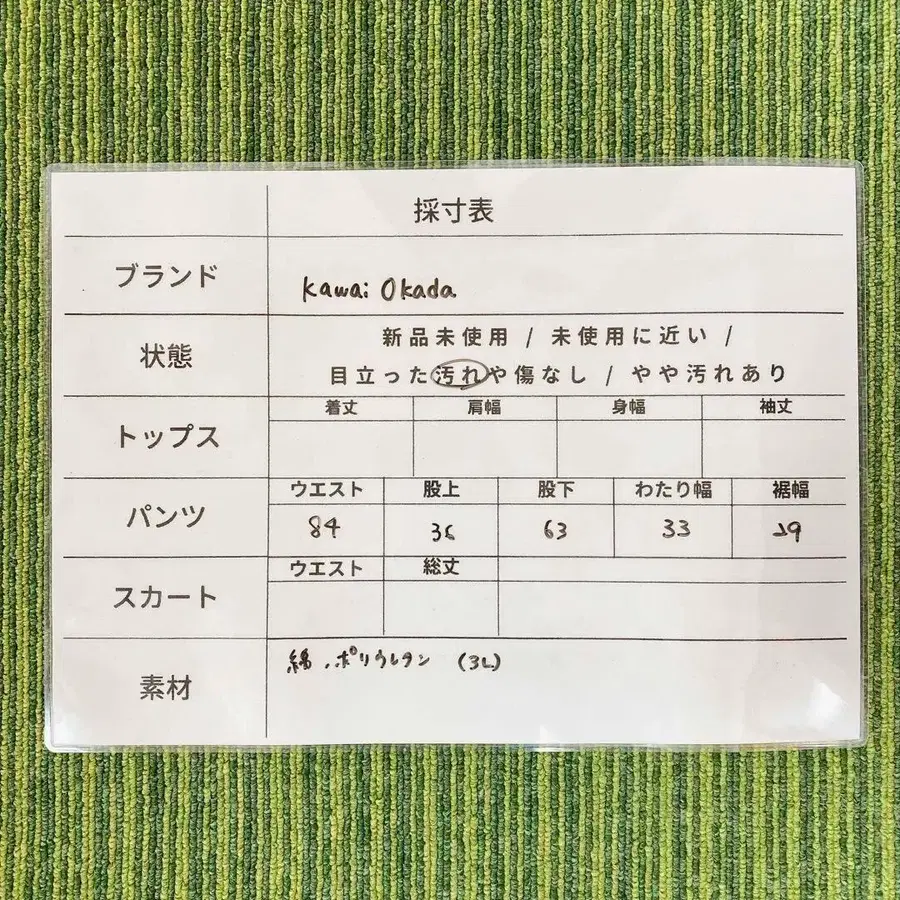 採寸表
ブランド
kawai Okada
状態
新品未使用 / 未使用に近い /
目立った汚れや傷なし / やや汚れあり
トップス
着丈 肩幅 身幅 袖丈
パンツ
ウエスト 股上 股下 わたり幅 裾幅
84 36 63 33 29
スカート
ウエスト 総丈
素材
綿、ポリウレタン (3L)